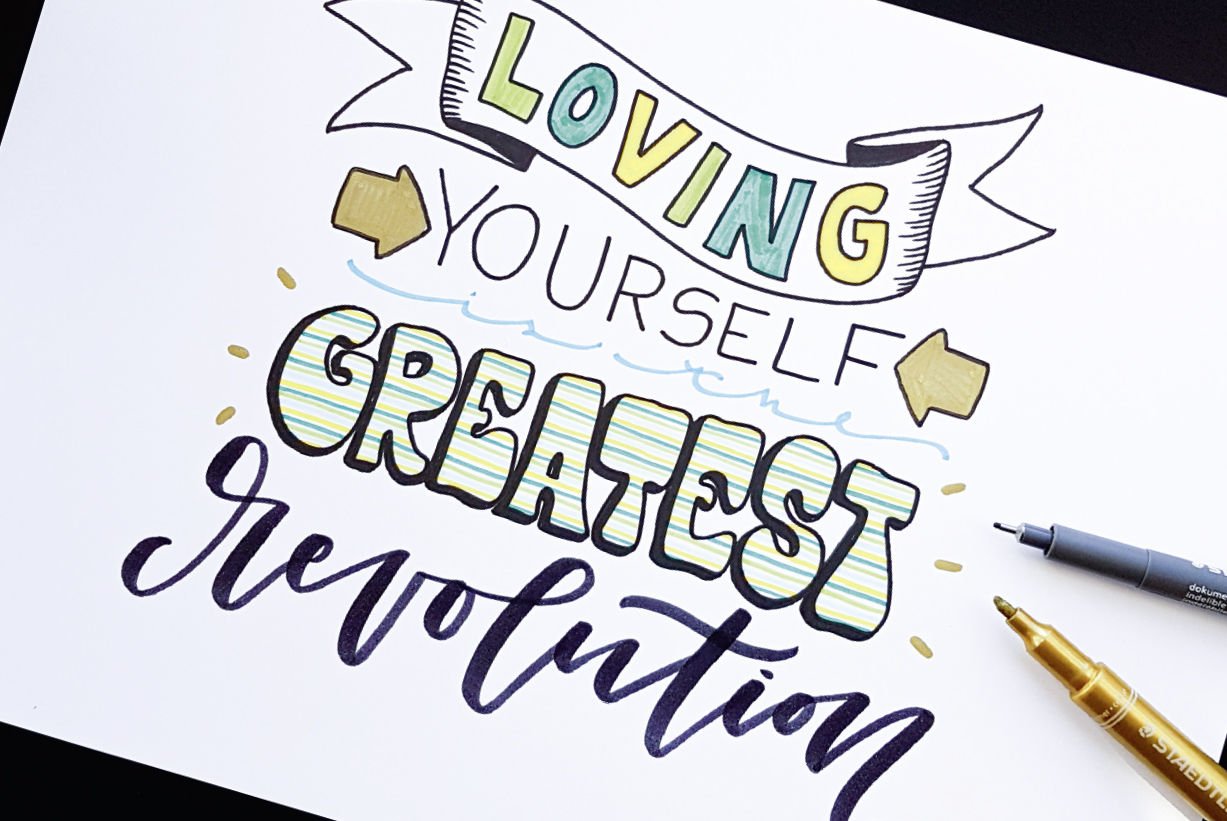 LOVING
YOURSELF
is the
GREATEST
revolution
dokume
indelible
STAEDTL